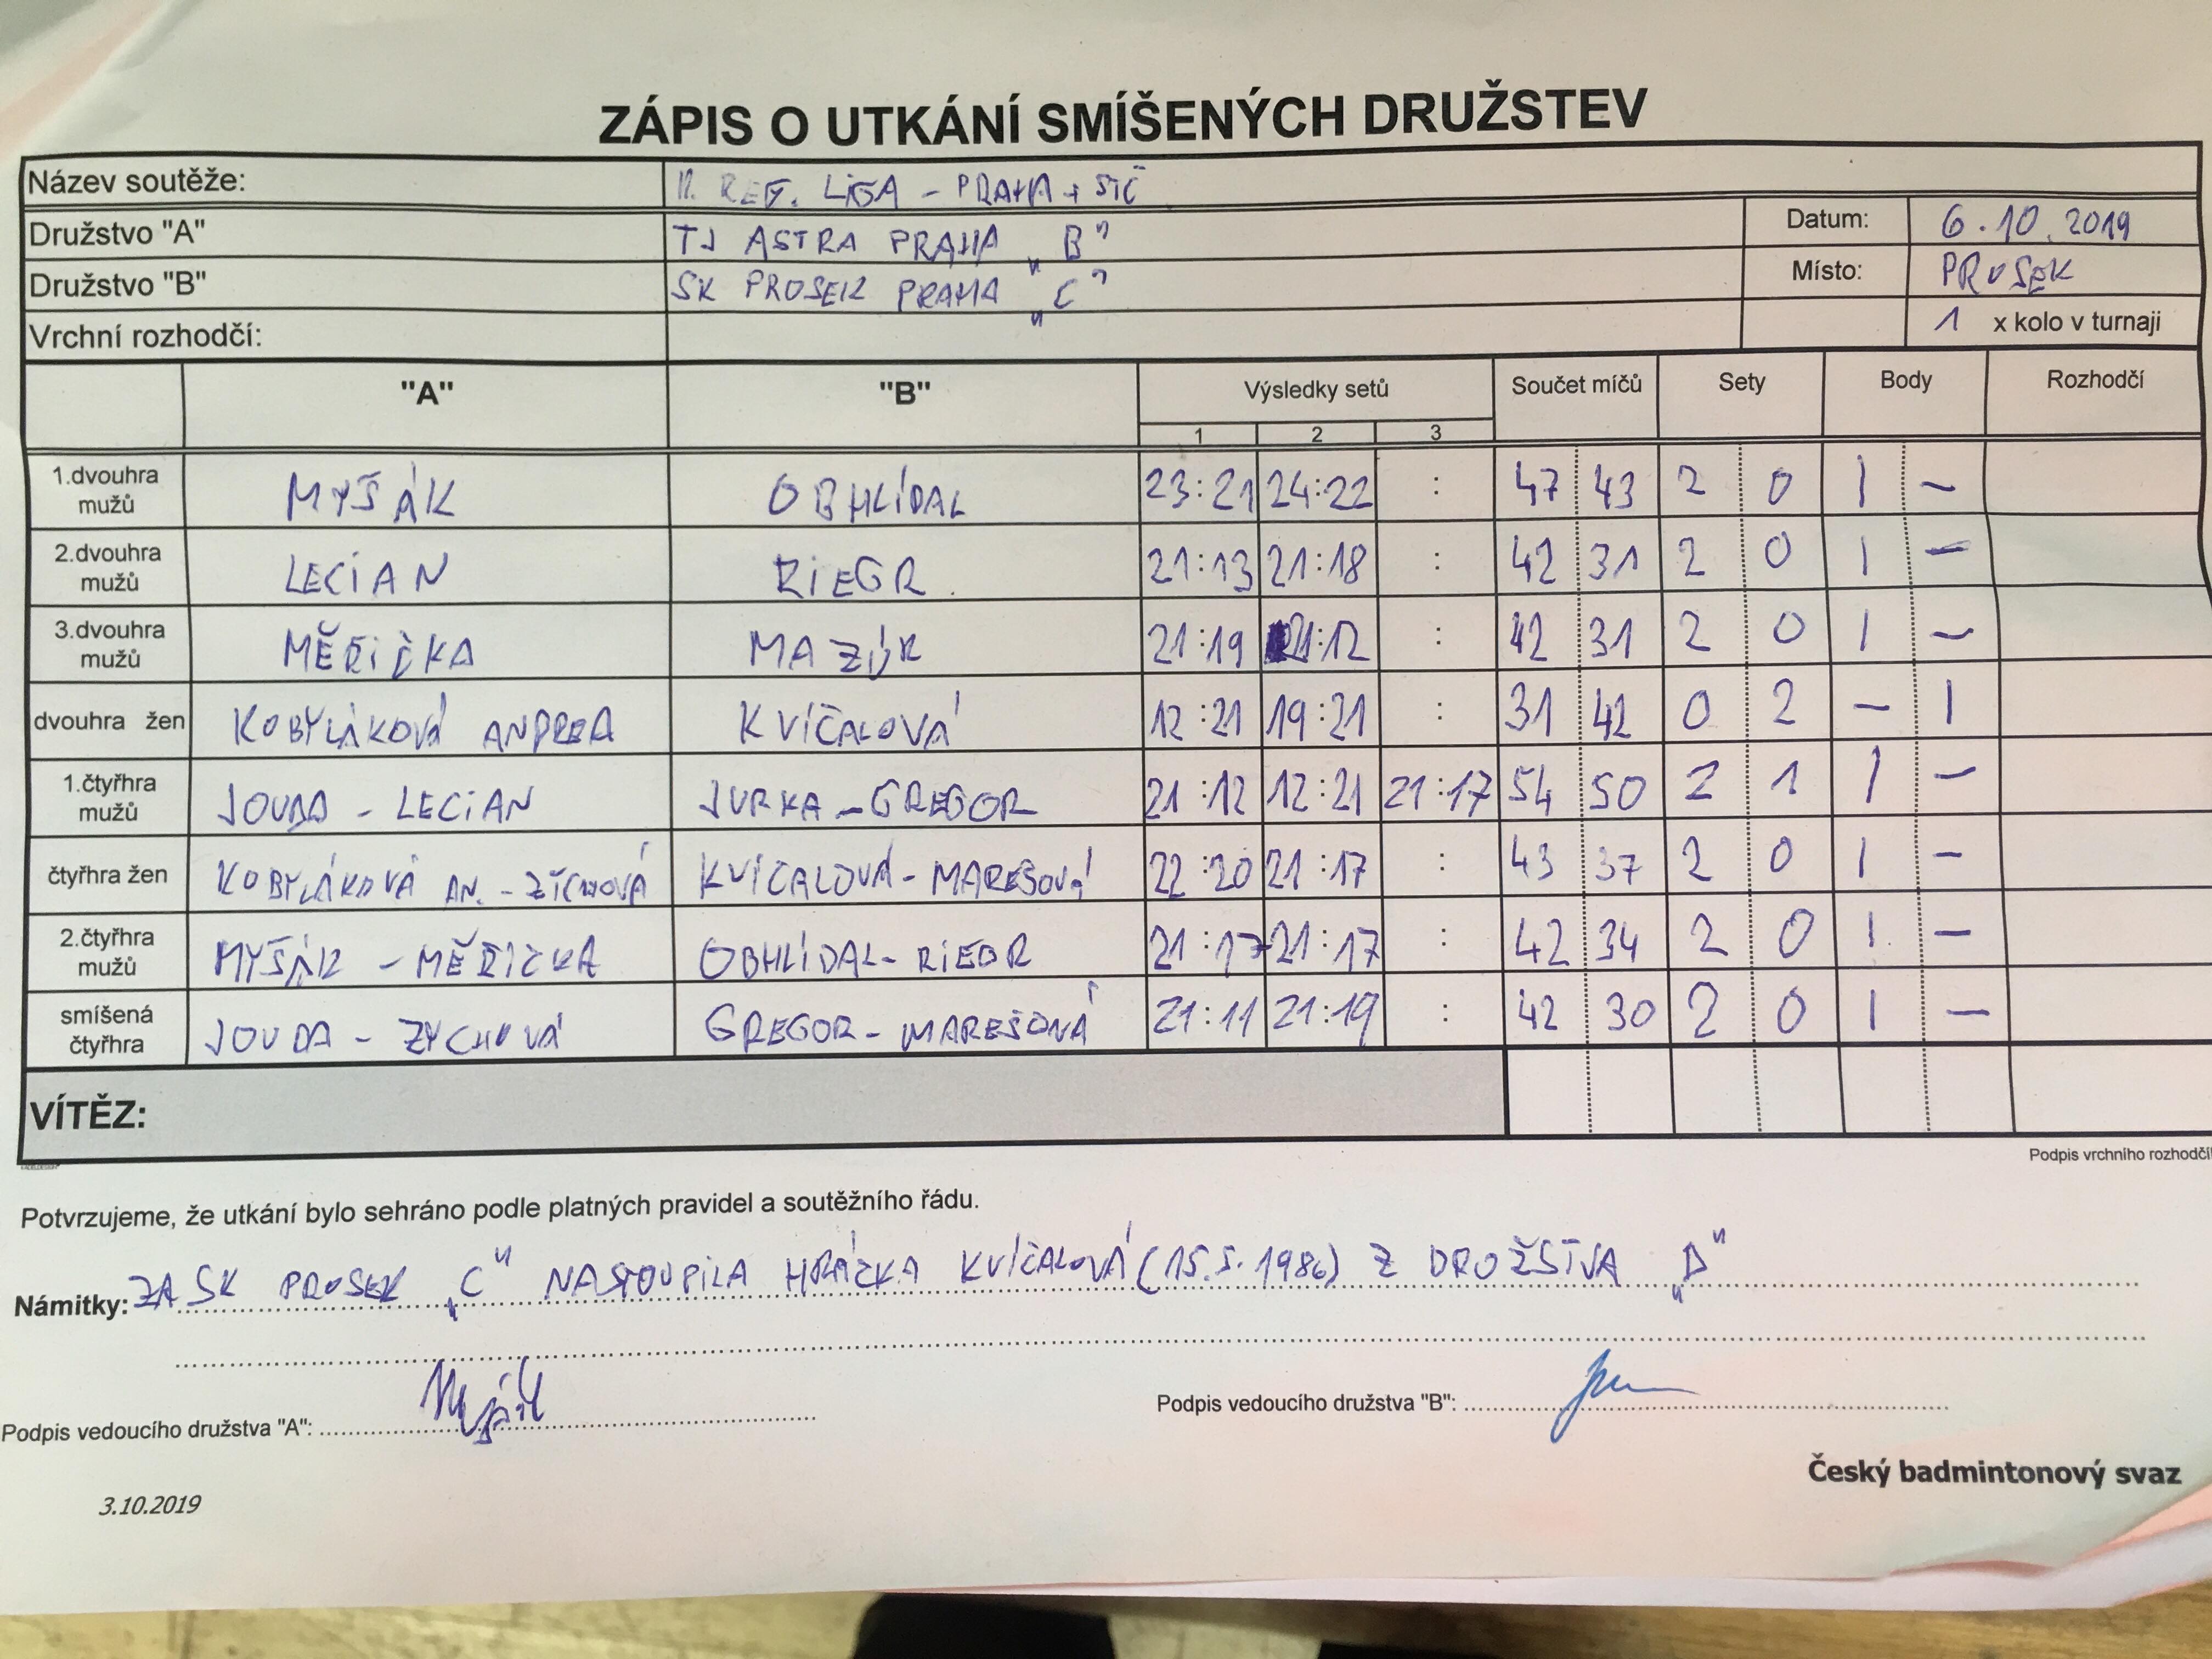 ZÁPIS O UTKÁNÍ SMÍŠENÝCH DRUŽSTEV
Název soutěže: II. REG. LIGA - PRAHA + STČ
Družstvo "A" TJ ASTRA PRAHA „B" Datum: 6.10.2019
Družstvo "B" SK PROSEK PRAHA „C" Místo: PROSEK
Vrchní rozhodčí: 1 x kolo v turnaji
"A" "B" Výsledky setů Součet míčů Sety Body Rozhodčí
1 2 3
1.dvouhra mužů MYŠÁK OBHLÍDAL 23:21 24:22 : 47 43 2 0 1 -
2.dvouhra mužů LECIAN RIEGR 21:13 21:18 : 42 31 2 0 1 -
3.dvouhra mužů MĚŘIČKA MAZÚR 21:19 21:12 : 42 31 2 0 1 -
dvouhra žen KOBYLÁKOVÁ ANDREA KVÍČALOVÁ 12:21 19:21 : 31 42 0 2 - 1
1.čtyřhra mužů JOUDA - LECIAN JURKA - GREGOR 21:12 12:21 21:17 54 50 2 1 1 -
čtyřhra žen KOBYLÁKOVÁ AN. - ZÍCHOVÁ KVÍČALOVÁ - MAREŠOVÁ 22:20 21:17 : 43 37 2 0 1 -
2.čtyřhra mužů MYŠÁK - MĚŘIČKA OBHLÍDAL - RIEGR 21:17 21:17 : 42 34 2 0 1 -
smíšená čtyřhra JOUDA - ZYCHOVÁ GREGOR - MAREŠOVÁ 21:11 21:19 : 42 30 2 0 1 -
VÍTĚZ:
Podpis vrchního rozhodčí
Potvrzujeme, že utkání bylo sehráno podle platných pravidel a soutěžního řádu.
Námitky: ZA SK PROSEK „C" NASTOUPILA HRÁČKA KVÍČALOVÁ (15.5.1986) Z DRUŽSTVA „D"
Podpis vedoucího družstva "A": Podpis vedoucího družstva "B":
Český badmintonový svaz
3.10.2019